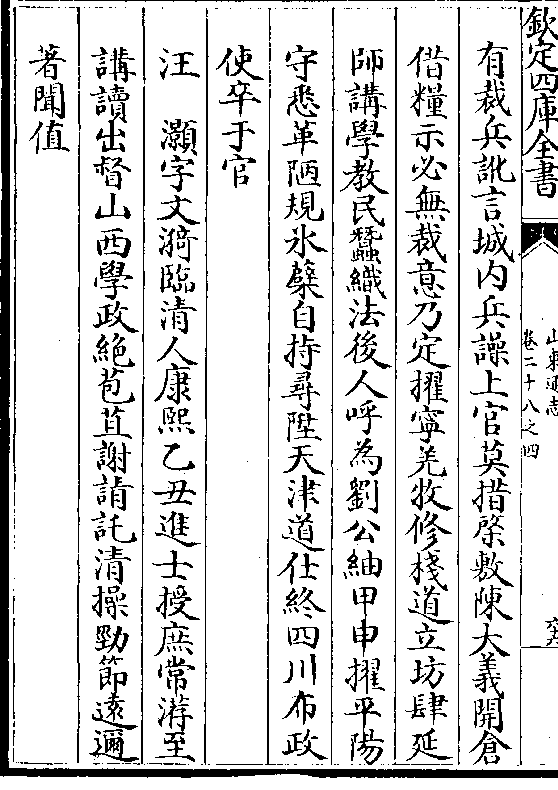 欽定四庫全書
山東通志
卷二十八之四
有裁兵訛言城内兵譟上官莫措棨敷陳大義開倉
借糧示必無裁意乃定擢寧羌牧修棧道立坊肆延
師講學教民蠶織法後人呼為劉公紬甲申擢平陽
守悉革陋規氷蘖自持尋陞天津道仕終四川布政
使卒于官
汪　灝字文漪臨清人康熙乙丑進士授庶常游至
講讀出督山西學政絶苞苴謝請託清操勁節遠邇
著聞值